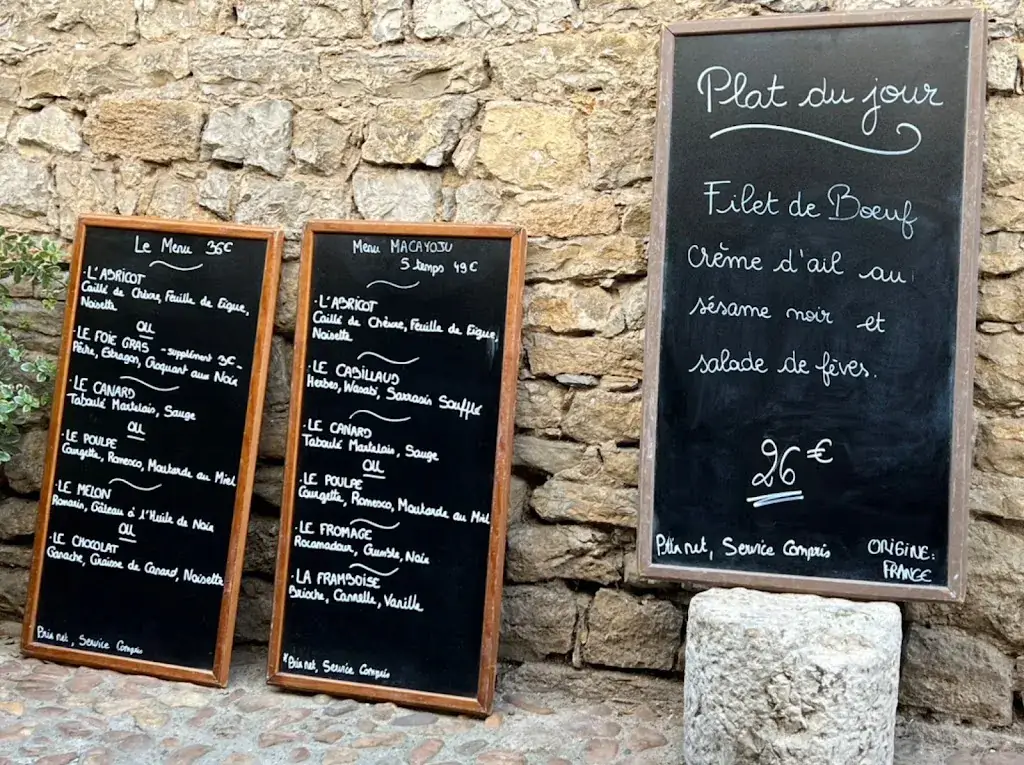 Le Menu 36€
· L'ABRICOT
Caillé de Chèvre, Feuille de Figue,
Noisette
OU
· LE FOIE GRAS - supplément 3€ -
Pêche, Estragon, Croquant aux Noix
· LE CANARD
Taboulé Martelais, Sauge
OU
· LE POULPE
Courgette, Romesco, Moutarde au Miel
· LE MELON
Romarin, Gâteau à l'Huile de Noix
OU
· LE CHOCOLAT
Ganache, Graisse de Canard, Noisette
Prix net, Service Compris
Menu MACAYOJU
5 temps 49€
· L'ABRICOT
Caillé de Chèvre, Feuille de Figue,
Noisette
· LE CABILLAUD
Herbes, Wasabi, Sarrasin Soufflé
· LE CANARD
Taboulé Martelais, Sauge
OU
· LE POULPE
Courgette, Romesco, Moutarde au Miel
· LE FROMAGE
Rocamadour, Crumble, Noix
· LA FRAMBOISE
Brioche, Cannelle, Vanille
*Prix net, Service Compris
Plat du jour
Filet de Boeuf
Crème d'ail au
sésame noir et
salade de fèves.
26€
Prix net, Service Compris
ORIGINE:
FRANCE